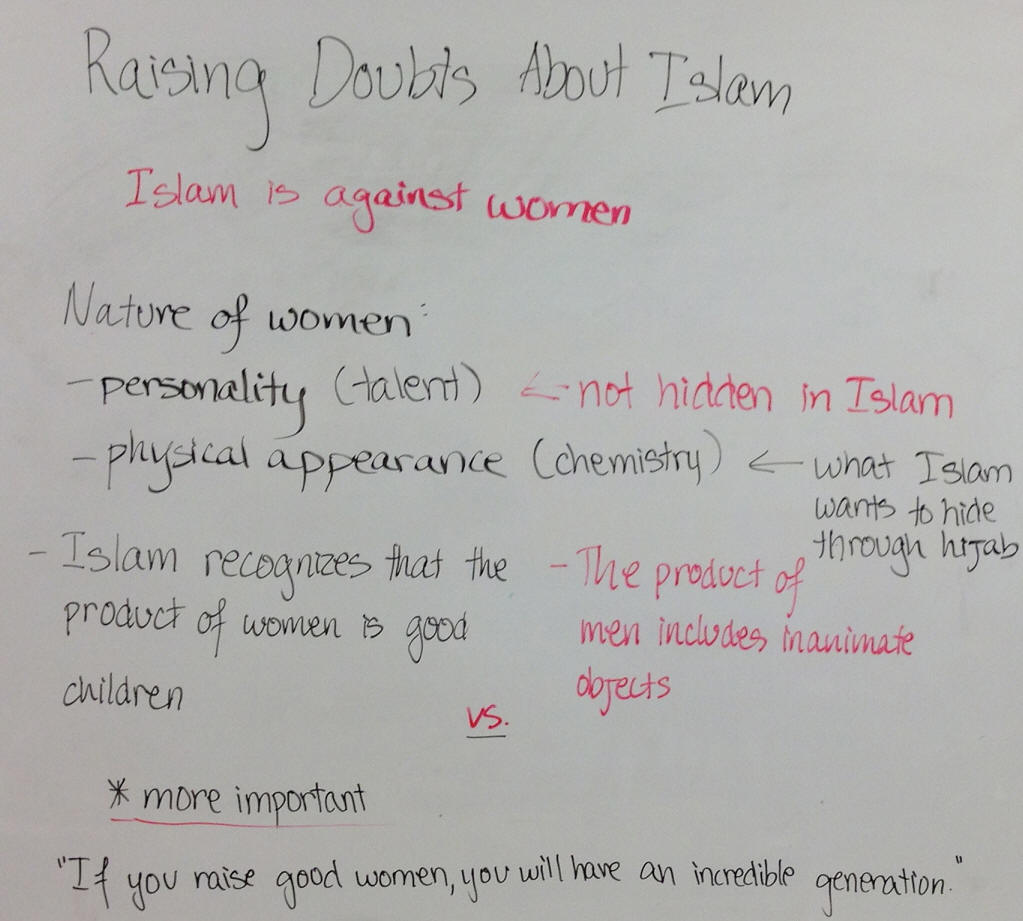 Raising Doubts About Islam
Islam is against women
Nature of women:
- personality (talent) ← not hidden in Islam
- physical appearance (chemistry) ← what Islam
wants to hide
through hijab
- Islam recognizes that the
product of women is good
children
vs.
- The product of
men includes inanimate
objects
* more important
"If you raise good women, you will have an incredible generation."